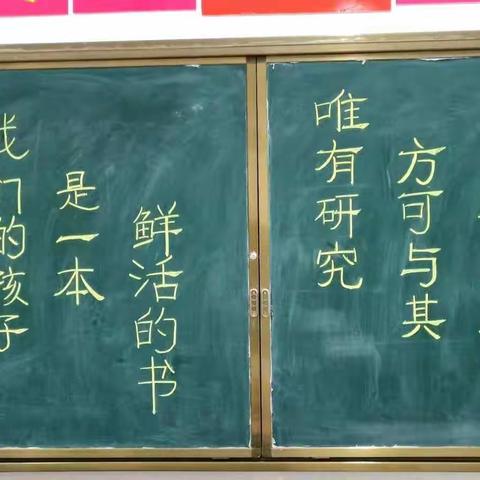 我们的孩子
是一本
鲜活的书
唯有研究
方可与其